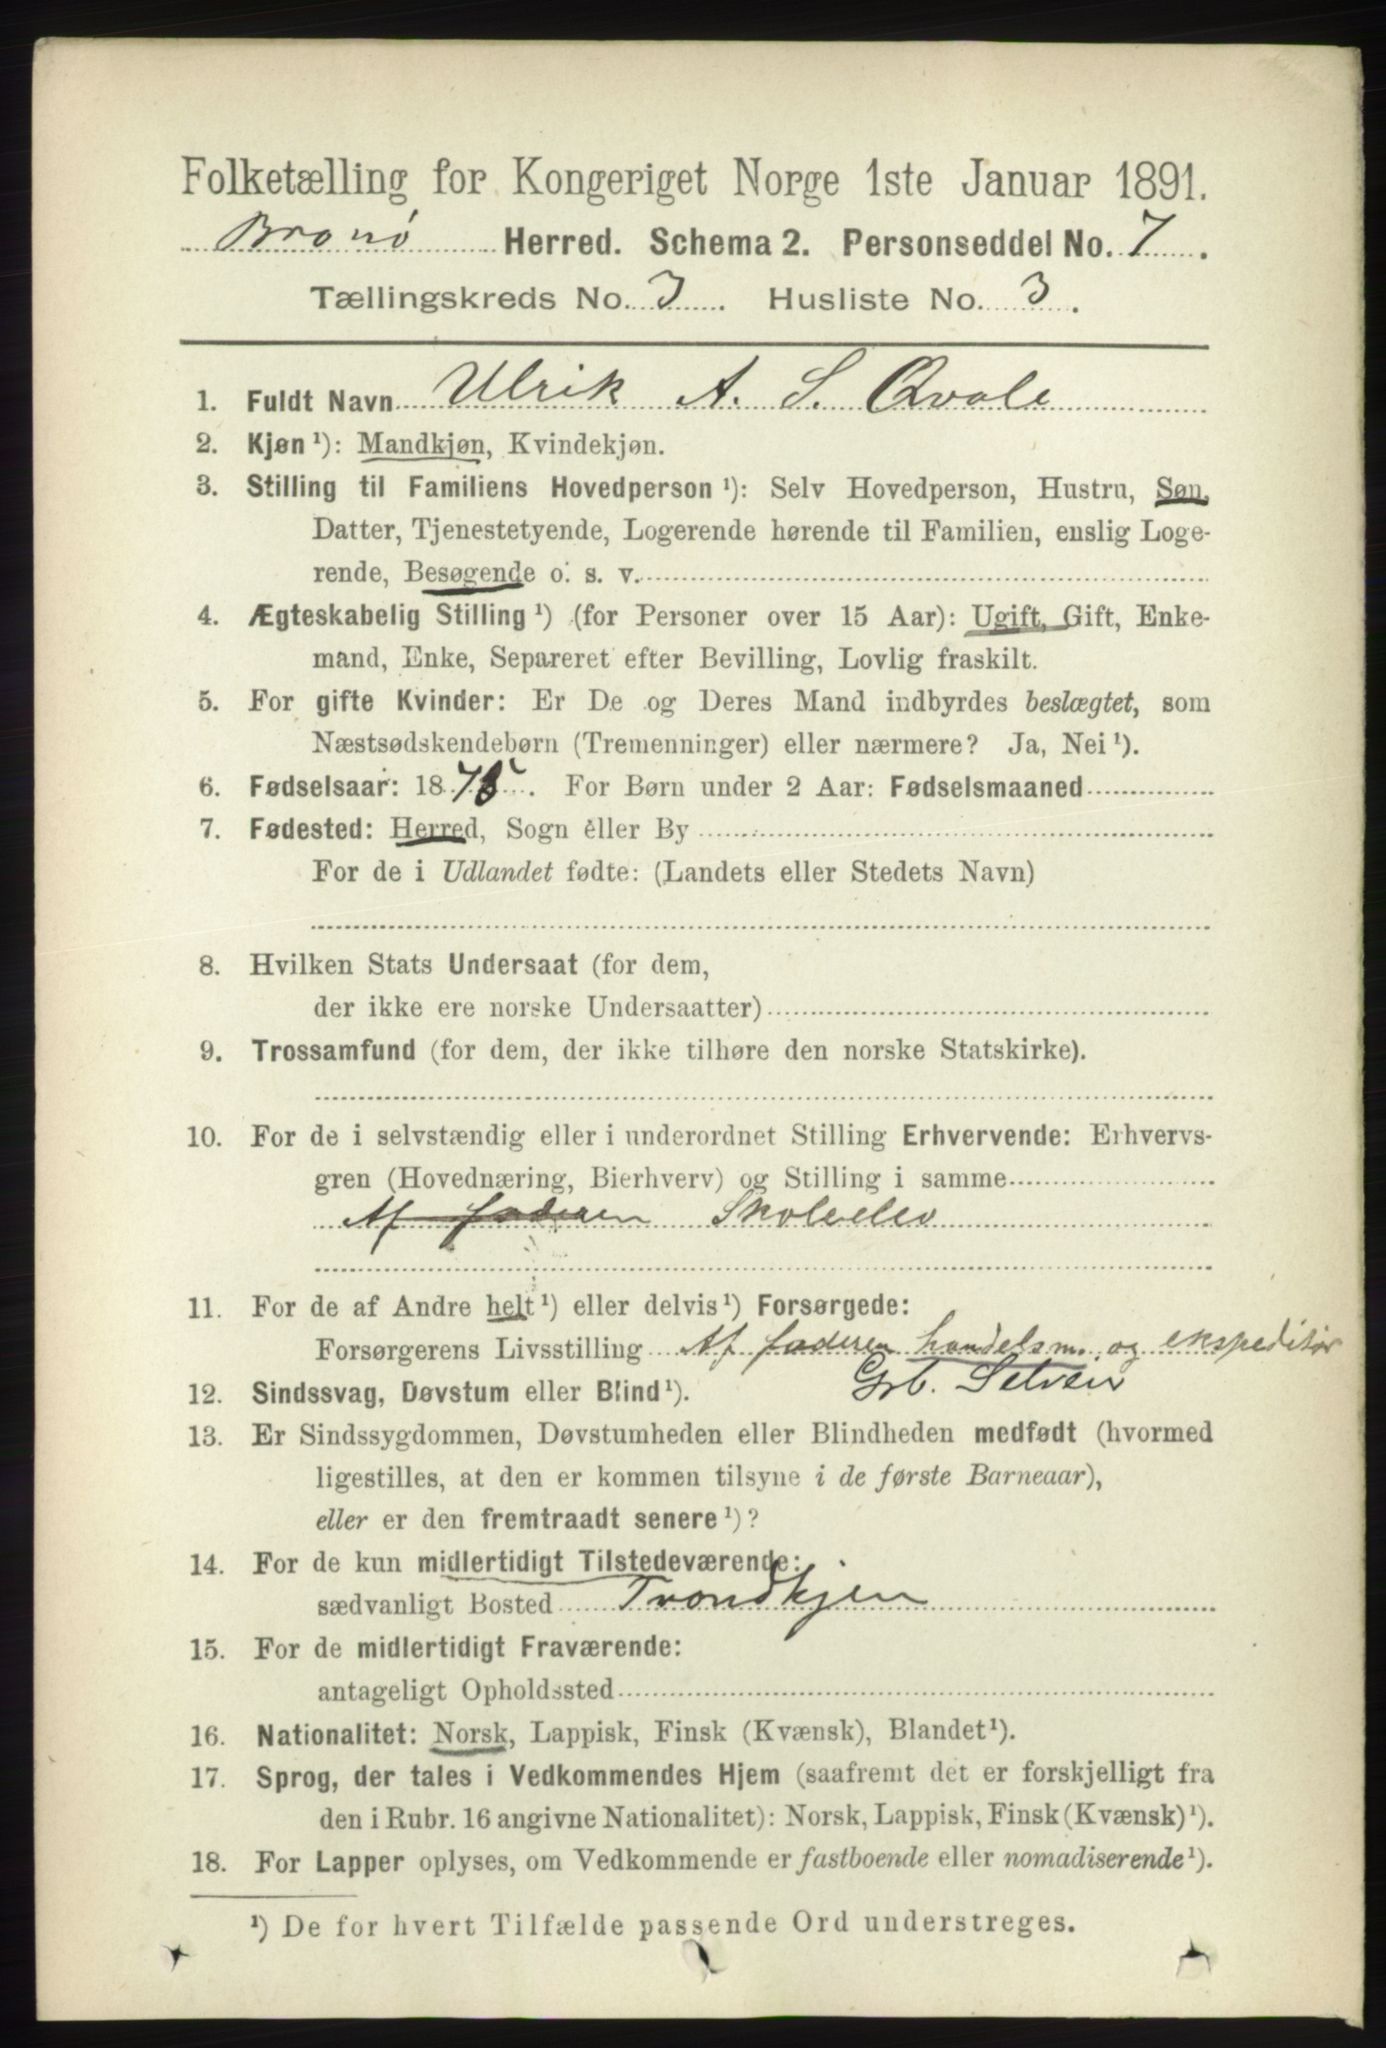 Folketælling for Kongeriget Norge 1ste Januar 1891.
Brønø Herred. Schema 2. Personseddel No. 7.
Tællingskreds No. 3. Husliste No. 3.
1. Fuldt Navn Ulrik A. S. Qvale
2. Kjøn ¹): Mandkjøn, Kvindekjøn.
3. Stilling til Familiens Hovedperson ¹): Selv Hovedperson, Hustru, Søn,
Datter, Tjenestetyende, Logerende hørende til Familien, enslig Loge-
rende, Besøgende o. s. v.
4. Ægteskabelig Stilling ¹) (for Personer over 15 Aar): Ugift, Gift, Enke-
mand, Enke, Separeret efter Bevilling, Lovlig fraskilt.
5. For gifte Kvinder: Er De og Deres Mand indbyrdes beslægtet, som
Næstsødskendebørn (Tremenninger) eller nærmere? Ja, Nei ¹).
6. Fødselsaar: 1875. For Børn under 2 Aar: Fødselsmaaned
7. Fødested: Herred, Sogn eller By
For de i Udlandet fødte: (Landets eller Stedets Navn)
8. Hvilken Stats Undersaat (for dem,
der ikke ere norske Undersaatter)
9. Trossamfund (for dem, der ikke tilhøre den norske Statskirke).
10. For de i selvstændig eller i underordnet Stilling Erhvervende: Erhvervs-
gren (Hovednæring, Bierhverv) og Stilling i samme
Af faderen Skoleelev
11. For de af Andre helt ¹) eller delvis ¹) Forsørgede:
Forsørgerens Livsstilling Af faderen handelsm. og ekspeditør
12. Sindssvag, Døvstum eller Blind ¹). Grb. Selveier
13. Er Sindssygdommen, Døvstumheden eller Blindheden medfødt (hvormed
ligestilles, at den er kommen tilsyne i de første Barneaar),
eller er den fremtraadt senere ¹)?
14. For de kun midlertidigt Tilstedeværende:
sædvanligt Bosted Trondhjem
15. For de midlertidigt Fraværende:
antageligt Opholdssted
16. Nationalitet: Norsk, Lappisk, Finsk (Kvænsk), Blandet ¹).
17. Sprog, der tales i Vedkommendes Hjem (saafremt det er forskjelligt fra
den i Rubr. 16 angivne Nationalitet): Norsk, Lappisk, Finsk (Kvænsk) ¹).
18. For Lapper oplyses, om Vedkommende er fastboende eller nomadiserende ¹).
¹) De for hvert Tilfælde passende Ord understreges.